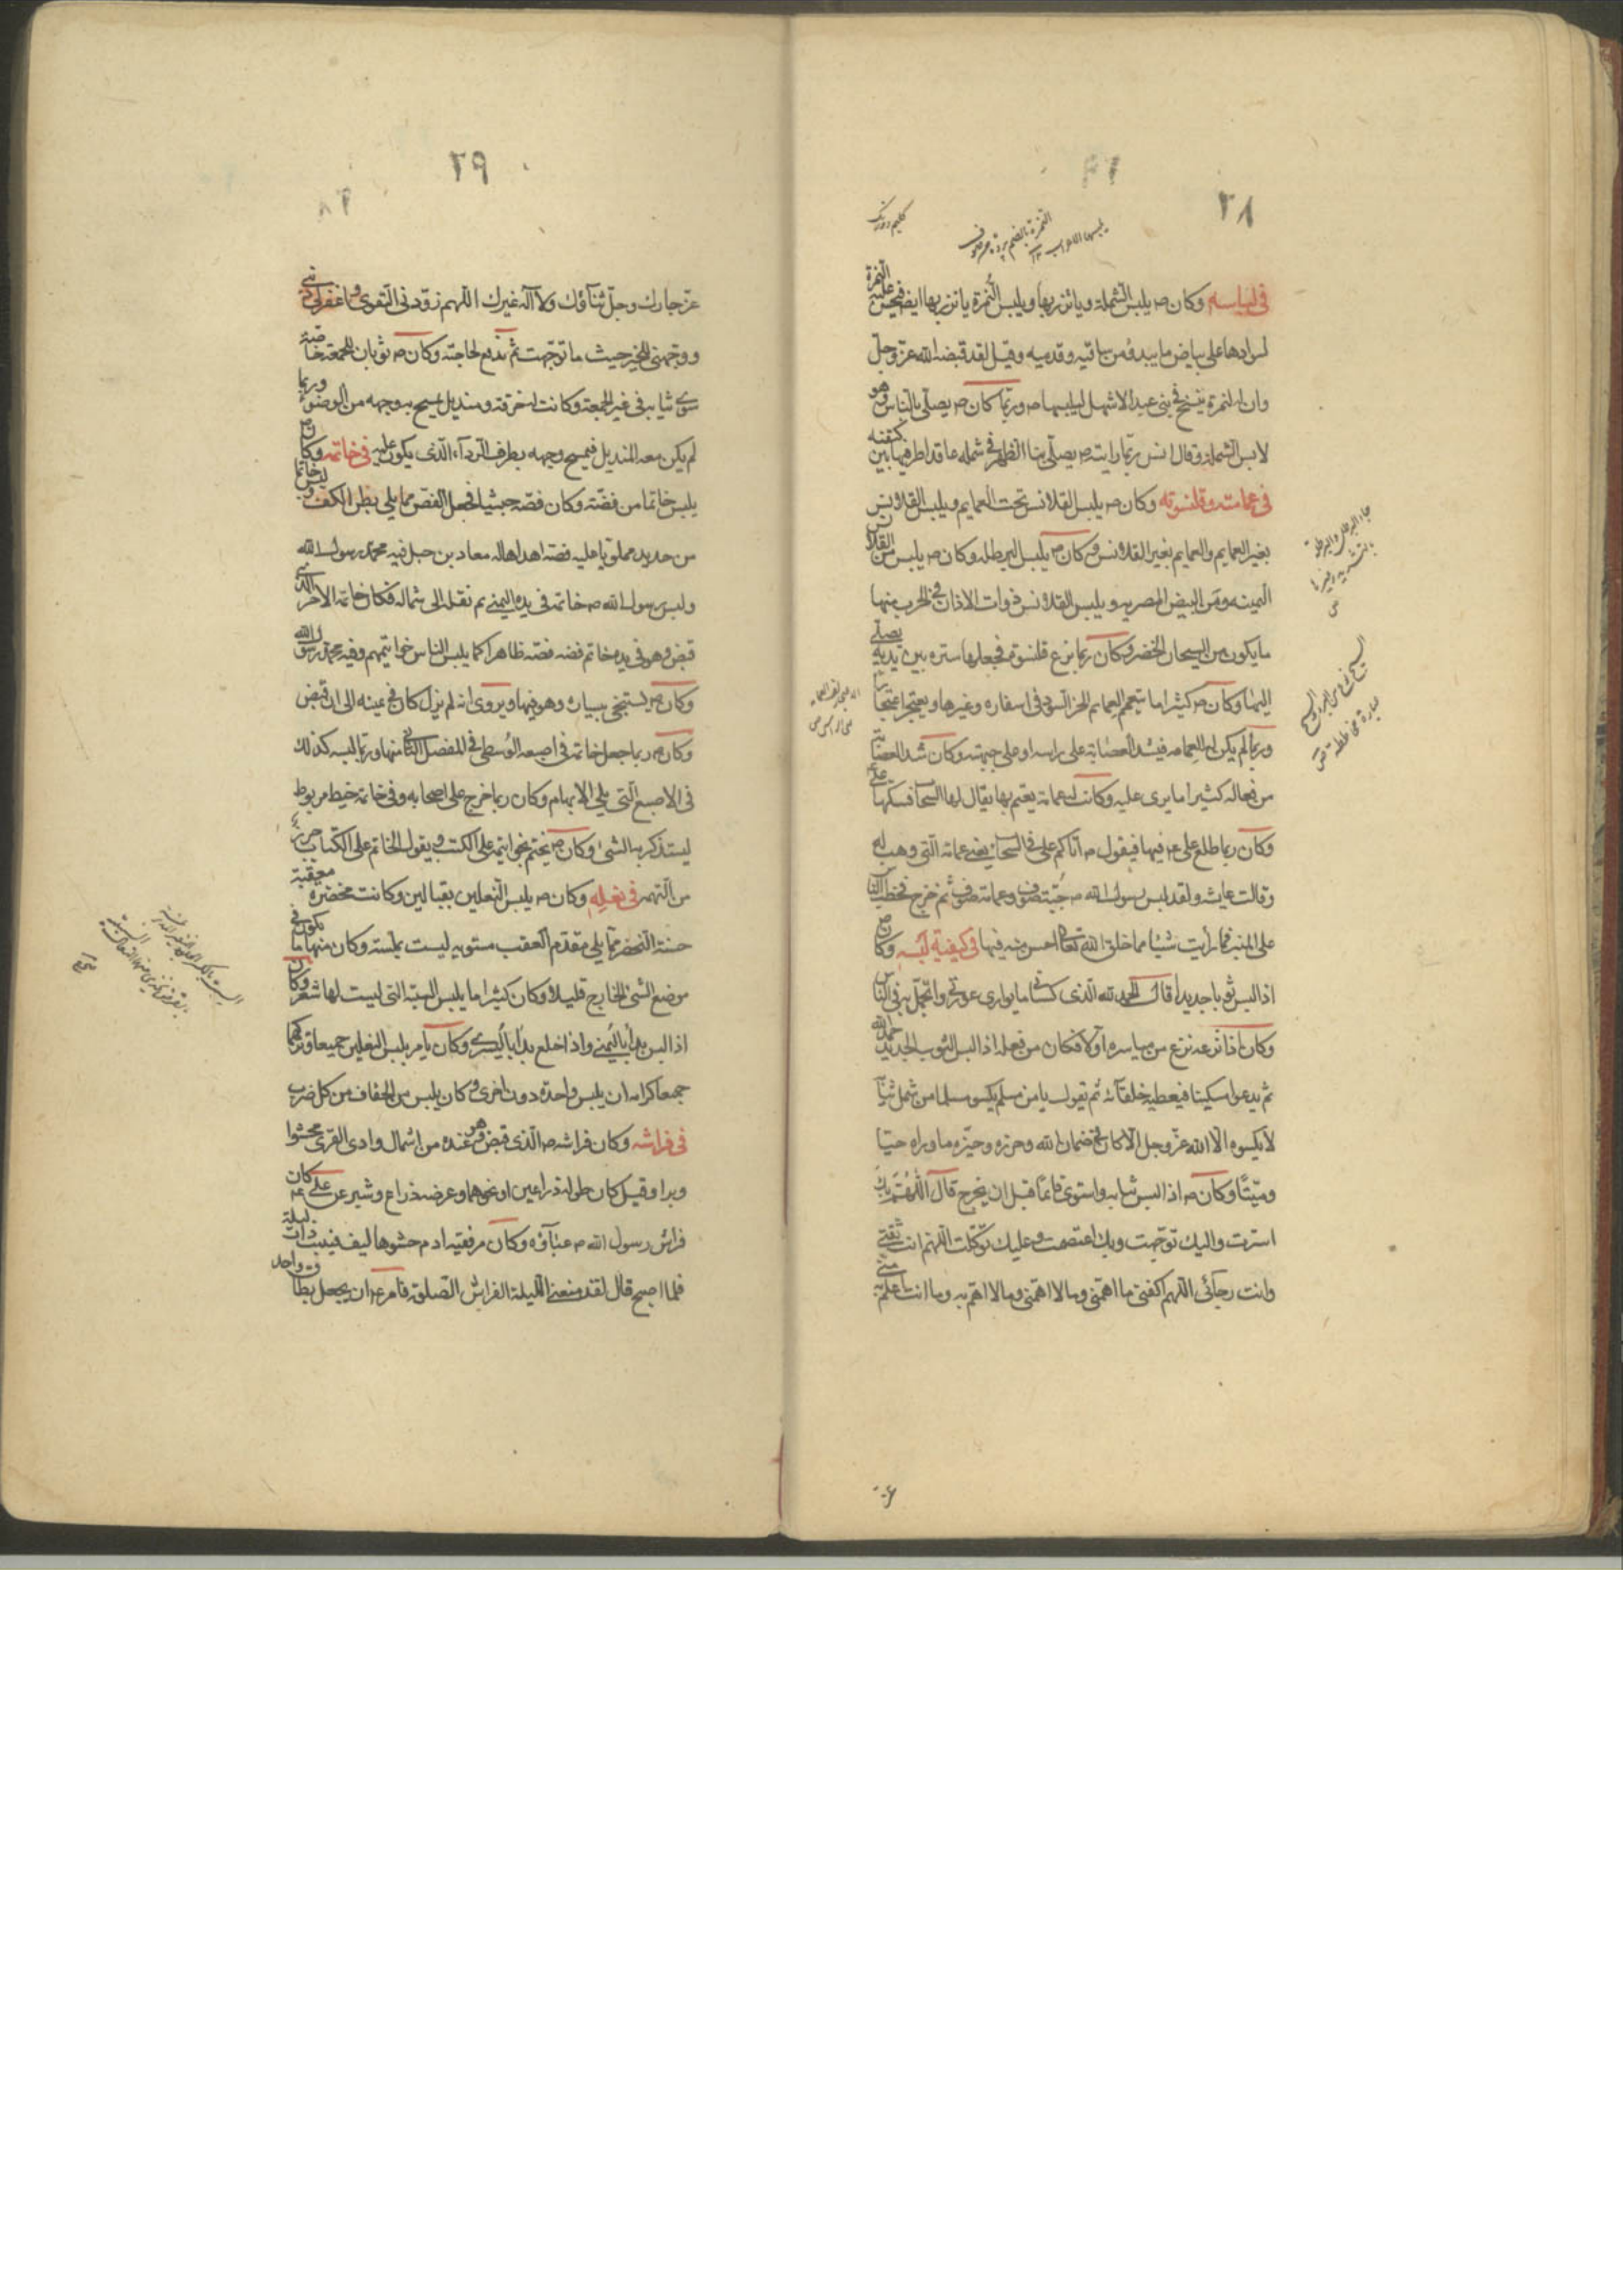 ٢٨
في لباسه وكان ص يلبس الشملة وياتزر بها ويلبس النمرة ياتزر بها ايضا فيحسن عليه النمرة
لسوادها على بياض ما يبدو من ساقيه وقدميه وقيل لقد قبضه الله عز وجل
وان له لنمرة ينسج في بني عبد الاشهل ليلبسها ص وربما كان ص يصلي بالناس وهو
لابس الشملة وقال انس ربما رايته ص يصلي بنا الظهر في شملة عاقد اطرفيها بين كتفيه
في عمامته وقلنسوته وكان ص يلبس القلانس تحت العمايم ويلبس القلانس
بغير العمايم والعمايم بغير القلانس وكان ص يلبس البرطله وكان ص يلبس من القلانس
اليمنيه ومن البيض المصريه ويلبس القلانس ذوات الاذان في الحرب منها
ما يكون من السيحان الخضر وكان ربما نزع قلنسوته فجعلها ستره بين يديه يصلي
اليها وكان ص كثيرا ما يتعمم بعمايم الخز السود في اسفاره وغيرها ويعتجر اعتجارا
وربما لم يكن له العمامه فيشد العصابة على راسه او على جبهته وكان شد العصابة
من فعاله كثيرا ما يرى عليه وكانت له عمامة يعتم بها يقال لها السحاب فكساها علي
وكان ربما طلع علي ع فيها فيقول ص اتاكم علي في السحاب يعني عمامته التي وهب له
وقالت عايشه ولقد لبس رسول الله ص جبة صوف وعمامة صوف ثم خرج فخطب الناس
على المنبر فما رأيت شيئا مما خلق الله تعالى احسن منه فيها في كيفية لبسه وكان ص
اذا لبس ثوبا جديدا قال الحمد لله الذي كساني ما يواري عورتي واتجمل به في الناس
وكان اذا نزعه نزع من مياسره اولا فكان من فعله اذا لبس الثوب الجديد حمد الله
ثم يدعو مسكينا فيعطيه خلقانه ثم يقول ما من مسلم يكسو مسلما من شمل ثيابه
لا يكسوه الا الله عز وجل الا كان في ضمان الله وحرزه وخيره ما وراه حيا
وميتا وكان ص اذا لبس ثيابه واستوى قائما قبل ان يخرج قال اللهم بك
استرت واليك توجهت وبك اعتصمت وعليك توكلت اللهم انت ثقتي
وانت رجائي اللهم اكفني ما اهمني وما لا اهمني وما لا اهتم به وما انت اعلم به مني
عز
٢٩
عز جارك وجل ثناؤك ولا اله غيرك اللهم زودني التقوى واغفر لي ذنبي
ووجهني للخير حيث ما توجهت ثم يندفع لحاجته وكان ص ثوبان للجمعة خاصة
سوى ثيابه في غير الجمعة وكانت له خرقة ومنديل يمسح به وجهه من الوضوء وربما
لم يكن معه المنديل فيمسح وجهه بطرف الرداء الذي يكون عليه في خاتمه وكان ص
يلبس خاتما من فضة وكان فصه حبشيا فجعل الفص مما يلي بطن الكف ولبس خاتما
من حديد ملويا عليه فضة اهداها له معاذ بن جبل فيه محمد رسول الله
ولبس رسول الله ص خاتمه في يده اليمنى ثم نقله الى شماله فكان خاتمه الاخر الذي
قبض وهو في يده خاتم فضه فصه ظاهرا كما يلبس الناس خواتيمهم وفيه محمد رسول الله
وكان ص يستنجي بيساره وهو فيها ويروى انه لم يزل كان في يمينه الى ان قبض
وكان ص ربما جعل خاتمه في اصبعه الوسطى في المفصل الثاني منها وربما لبسه كذلك
في الاصبع التي يلي الابهام وكان ربما خرج على اصحابه وفي خاتمه خيط مربوط
ليستذكر به الشيء وكان ص يختم بخواتيمه على الكتب ويقول الخاتم على الكتاب حرز
من التهمة في نعله وكان ص يلبس النعلين بقبالين وكانت مخصرة معقبة
حسنة التخصر مما يلي مقدم العقب مستويه ليست بملسنة وكان منها ما يكون في
موضع الشئ الخارج قليلا وكان كثيرا ما يلبس السبتية التي ليست لها شعر وكان
اذا لبس بدأ باليمنى واذا خلع بدأ باليسرى وكان يامر بلبس النعلين جميعا وتركهما
جميعا كراهه ان يلبس واحدة دون اخرى وكان يلبس من الخفاف من كل ضرب
في فراشه وكان فراشه ص الذي قبض وهو عنده من اشمال وادي القرى محشوا
وبرا وقيل كان طوله ذراعين او نحوهما وعرضه ذراع وشبر عن علي ع كان
فراش رسول الله ص عباءة وكان مرفقيه ادم حشوها ليف فثنيت ذات ليلة
فلما اصبح قال لقد منعني الليلة الفراش الصلوة فامر ع ان يجعل بطاق واحد